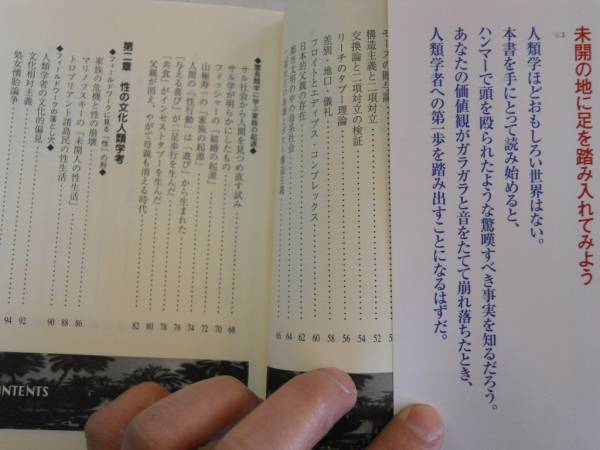 未開の地に足を踏み入れてみよう
人類学ほどおもしろい世界はない。
本書を手にとって読み始めると、
ハンマーで頭を殴られたような驚嘆すべき事実を知るだろう。
あなたの価値観がガラガラと音をたてて崩れ落ちたとき、
人類学者への第一歩を踏み出すことになるはずだ。
構造主義と二項対立 52
交換論と二項対立の検証 54
リーチのタブー理論 56
差別・地口・儀礼 58
フロイトとエディプス・コンプレックス 60
日本的父親の存在 62
都市文明の中の母系社会 64
66
◆霊長類学に学ぶ家族の起源◆
サル社会から人間を見つめ直す試み 68
サル学が明らかにしたもの 70
フィッシャーの「結婚の起源」 72
山極寿一の「家族の起源」 74
人間の「性行動」は「遊び」から生まれた 76
「与える喜び」が二足歩行を生んだ 78
「共食」がインセストタブーを生んだ 80
父親が消え、やがて母親も消える時代 82
第二章 性の文化人類学考
◆フィールドワークに見る「性」の形◆
家族の危機と性の崩壊 86
マリノフスキーの「未開人の性生活」 88
トロブリアンド諸島民の性生活 90
◆フィールドワークの落とし穴◆
人類学者の文化的偏見 92
文化相対主義 94
処女懐胎論争
CONTENTS